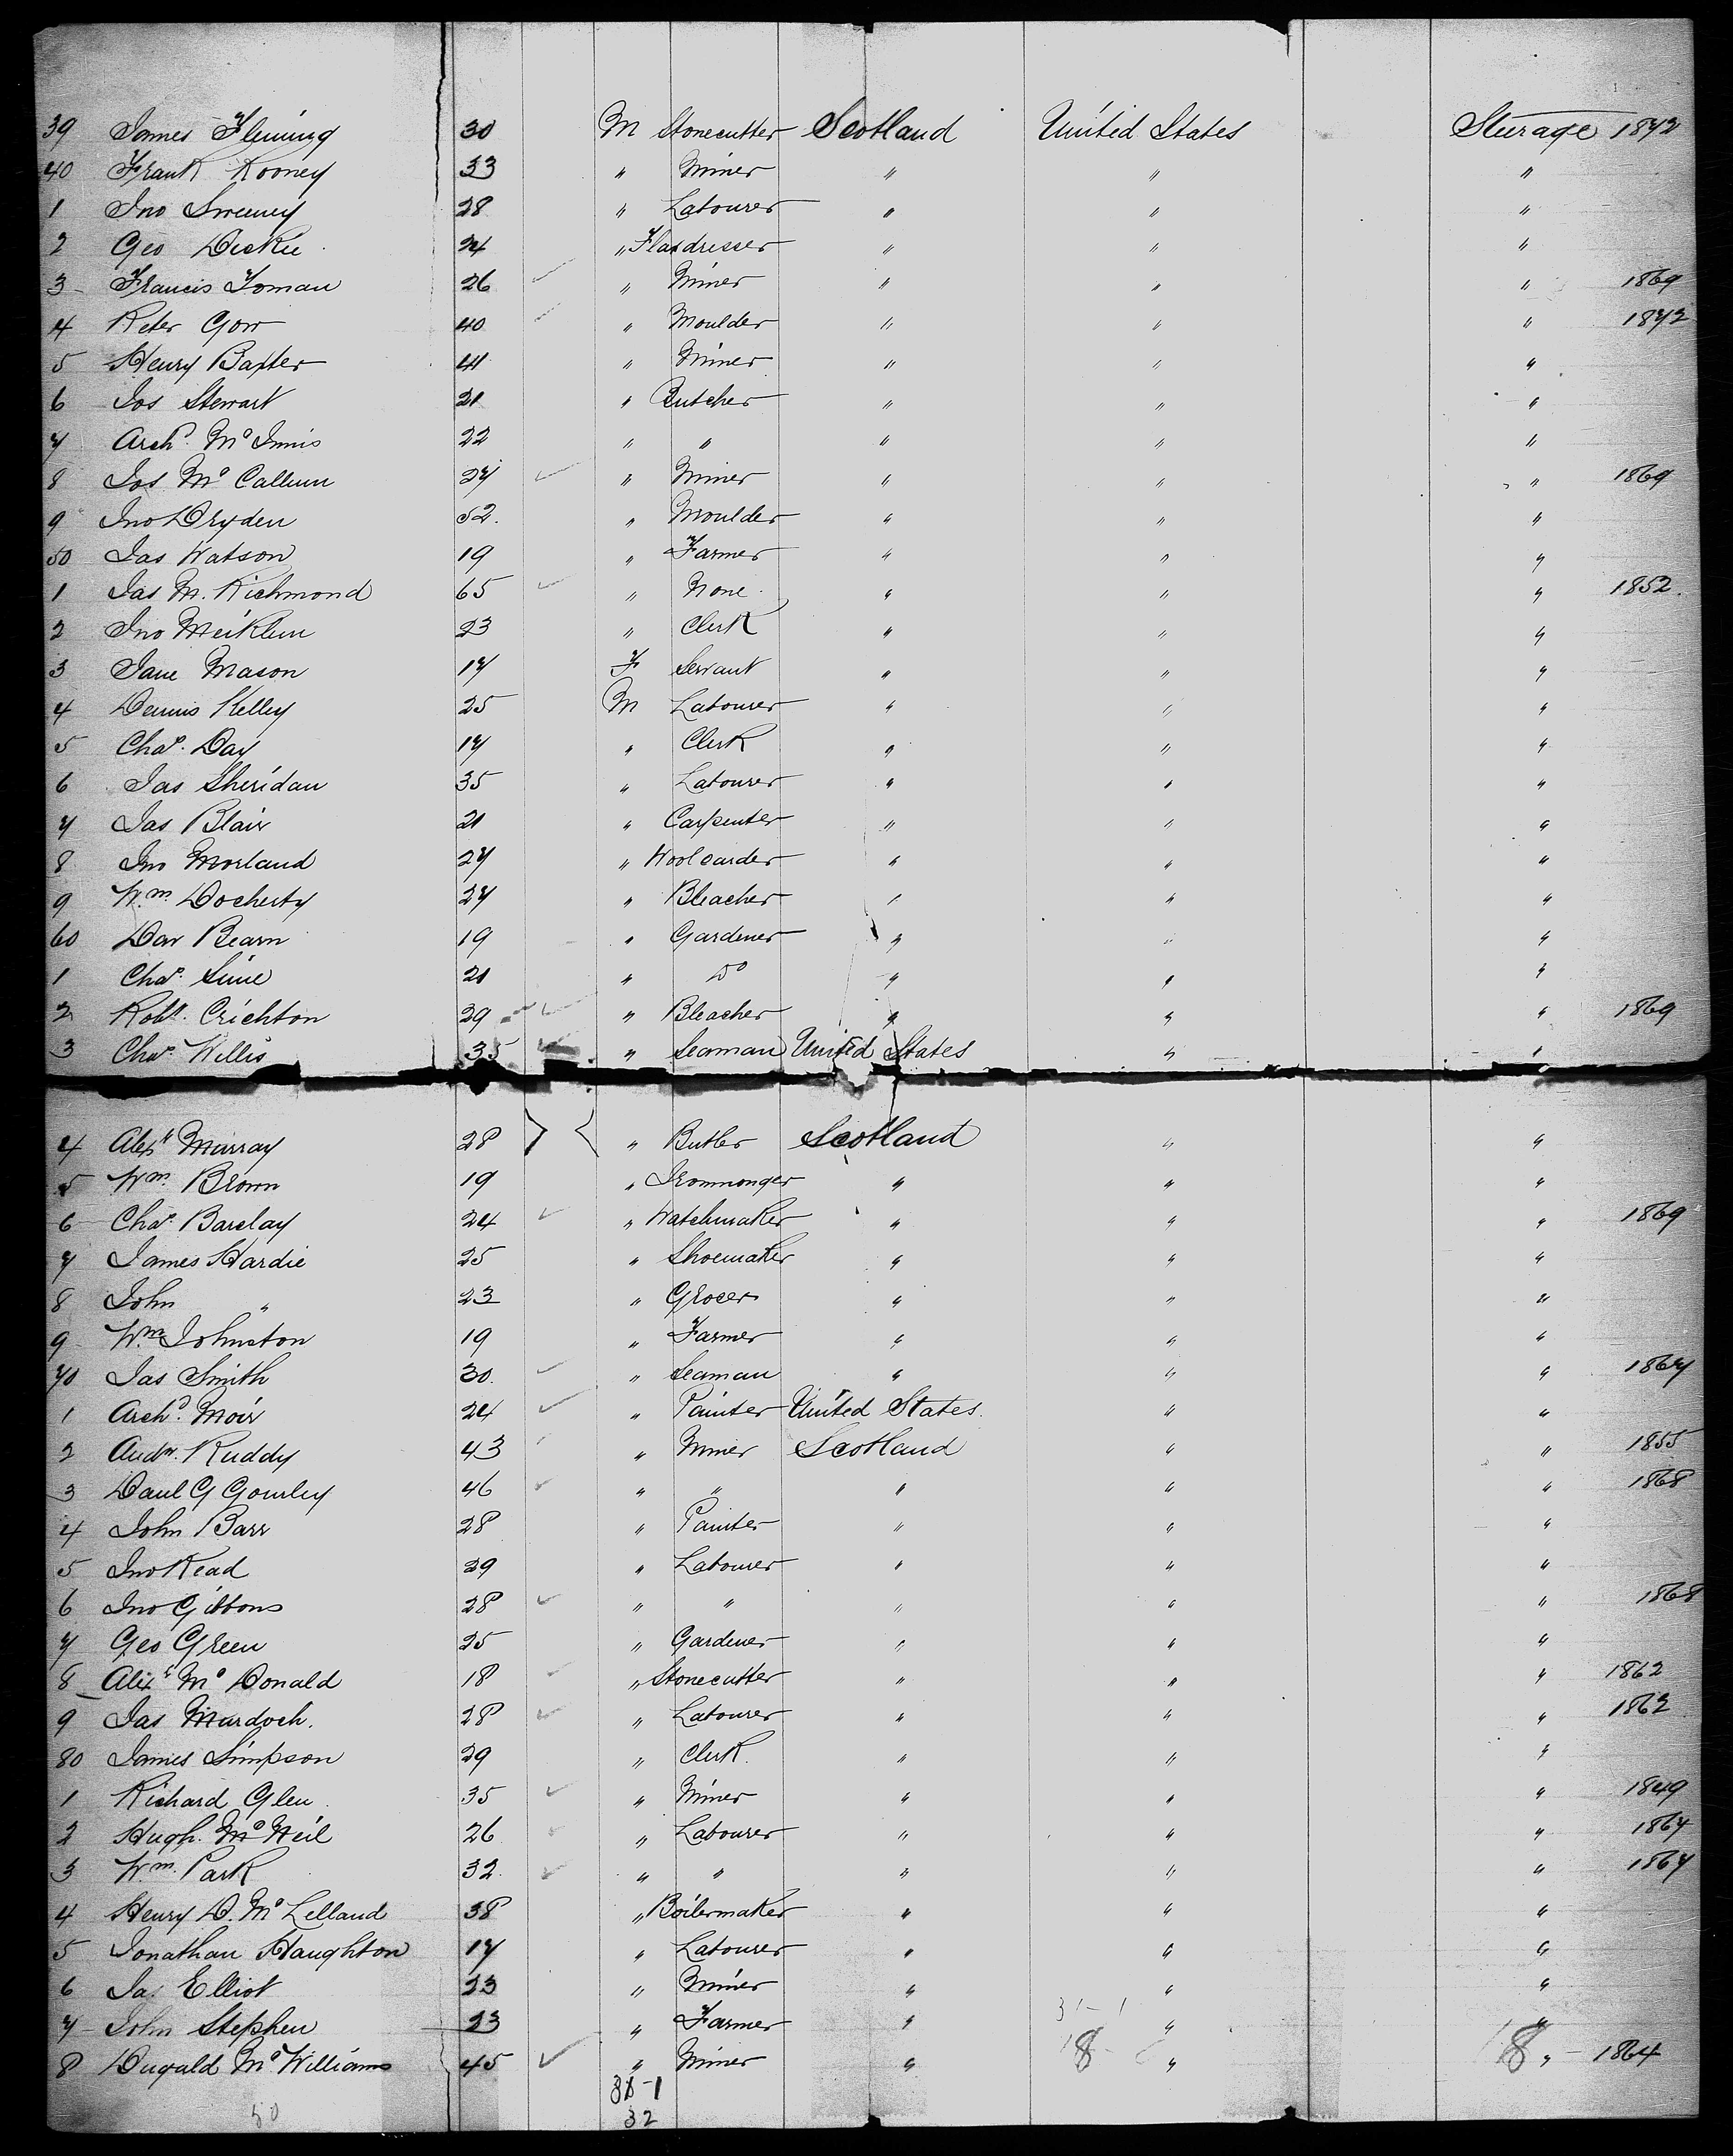 39 James Fleming 30 M Stonecutter Scotland United States Sturage 1872
40 Frank Rooney 33 " Miner " " "
1 Jno Sweeney 28 " Labourer " " "
2 Geo Dickie 24 " Flaxdresser " " "
3 Francis Toman 26 " Miner " " " 1869
4 Peter Gow 40 " Moulder " " " 1872
5 Henry Baxter 41 " Miner " " "
6 Jos Stewart 21 " Butcher " " "
7 Archd. Mc Innis 22 " " " " "
8 Jos Mc Callum 27 " Miner " " " 1869
9 Jno Dryden 52. " Moulder " " "
50 Jas Watson 19 " Farmer " " "
1 Jas M. Richmond 65 " None " " " 1852.
2 Jno Meiklem 23 " Clerk " " "
3 Jane Mason 17 F Servant " " "
4 Dennis Kelley 25 M Labourer " " "
5 Chas. Day 17 " Clerk " " "
6 Jas Sheridan 35 " Labourer " " "
7 Jas Blair 21 " Carpenter " " "
8 Jno Morland 27 " Woolcarder " " "
9 Wm. Docherty 27 " Bleacher " " "
60 Dav Bearn 19 " Gardener " " "
1 Chas. Sime 21 " Do " " "
2 Robt. Crichton 29 " Bleacher " " " 1869
3 Chas. Willis 35 " Seaman United States " "
4 Alexr Murray 28 " Butler Scotland " "
5 Wm. Brown 19 " Ironmonger " " "
6 Chas. Barclay 24 " Watchmaker " " " 1869
7 James Hardie 25 " Shoemaker " " "
8 John " 23 " Grocer " " "
9 Wm. Johnston 19 " Farmer " " "
70 Jas Smith 30. " Seaman " " " 1867
1 Archd. Moir 24 " Painter United States. " "
2 Andw. Ruddy 43 " Miner Scotland " " 1855
3 Danl G Gourley 46 " " " " " 1868
4 John Barr 28 " Painter " " "
5 Jno Read 29 " Labourer " " "
6 Jno Gibbons 28 " " " " " 1868
7 Geo Green 25 " Gardener " " "
8 Alexr Mc Donald 18 " Stonecutter " " " 1862
9 Jas Murdoch. 28 " Labourer " " " 1862
80 James Simpson 29 " Clerk. " " "
1 Richard Glen 35 " Miner " " " 1849
2 Hugh. Mc Neil 26 " Labourer " " " 1867
3 Wm. Park 32. " " " " " 1867
4 Henry D. Mc Lelland 38 " Boilermaker " " "
5 Jonathan Haughton 17 " Labourer " " "
6 Jas Elliot 23 " Miner " " "
7 John Stephen 23 " Farmer " " "
31-1
8 Dugald Mc Williams 45 " Miner " 18 " 18 " 1864
50
32